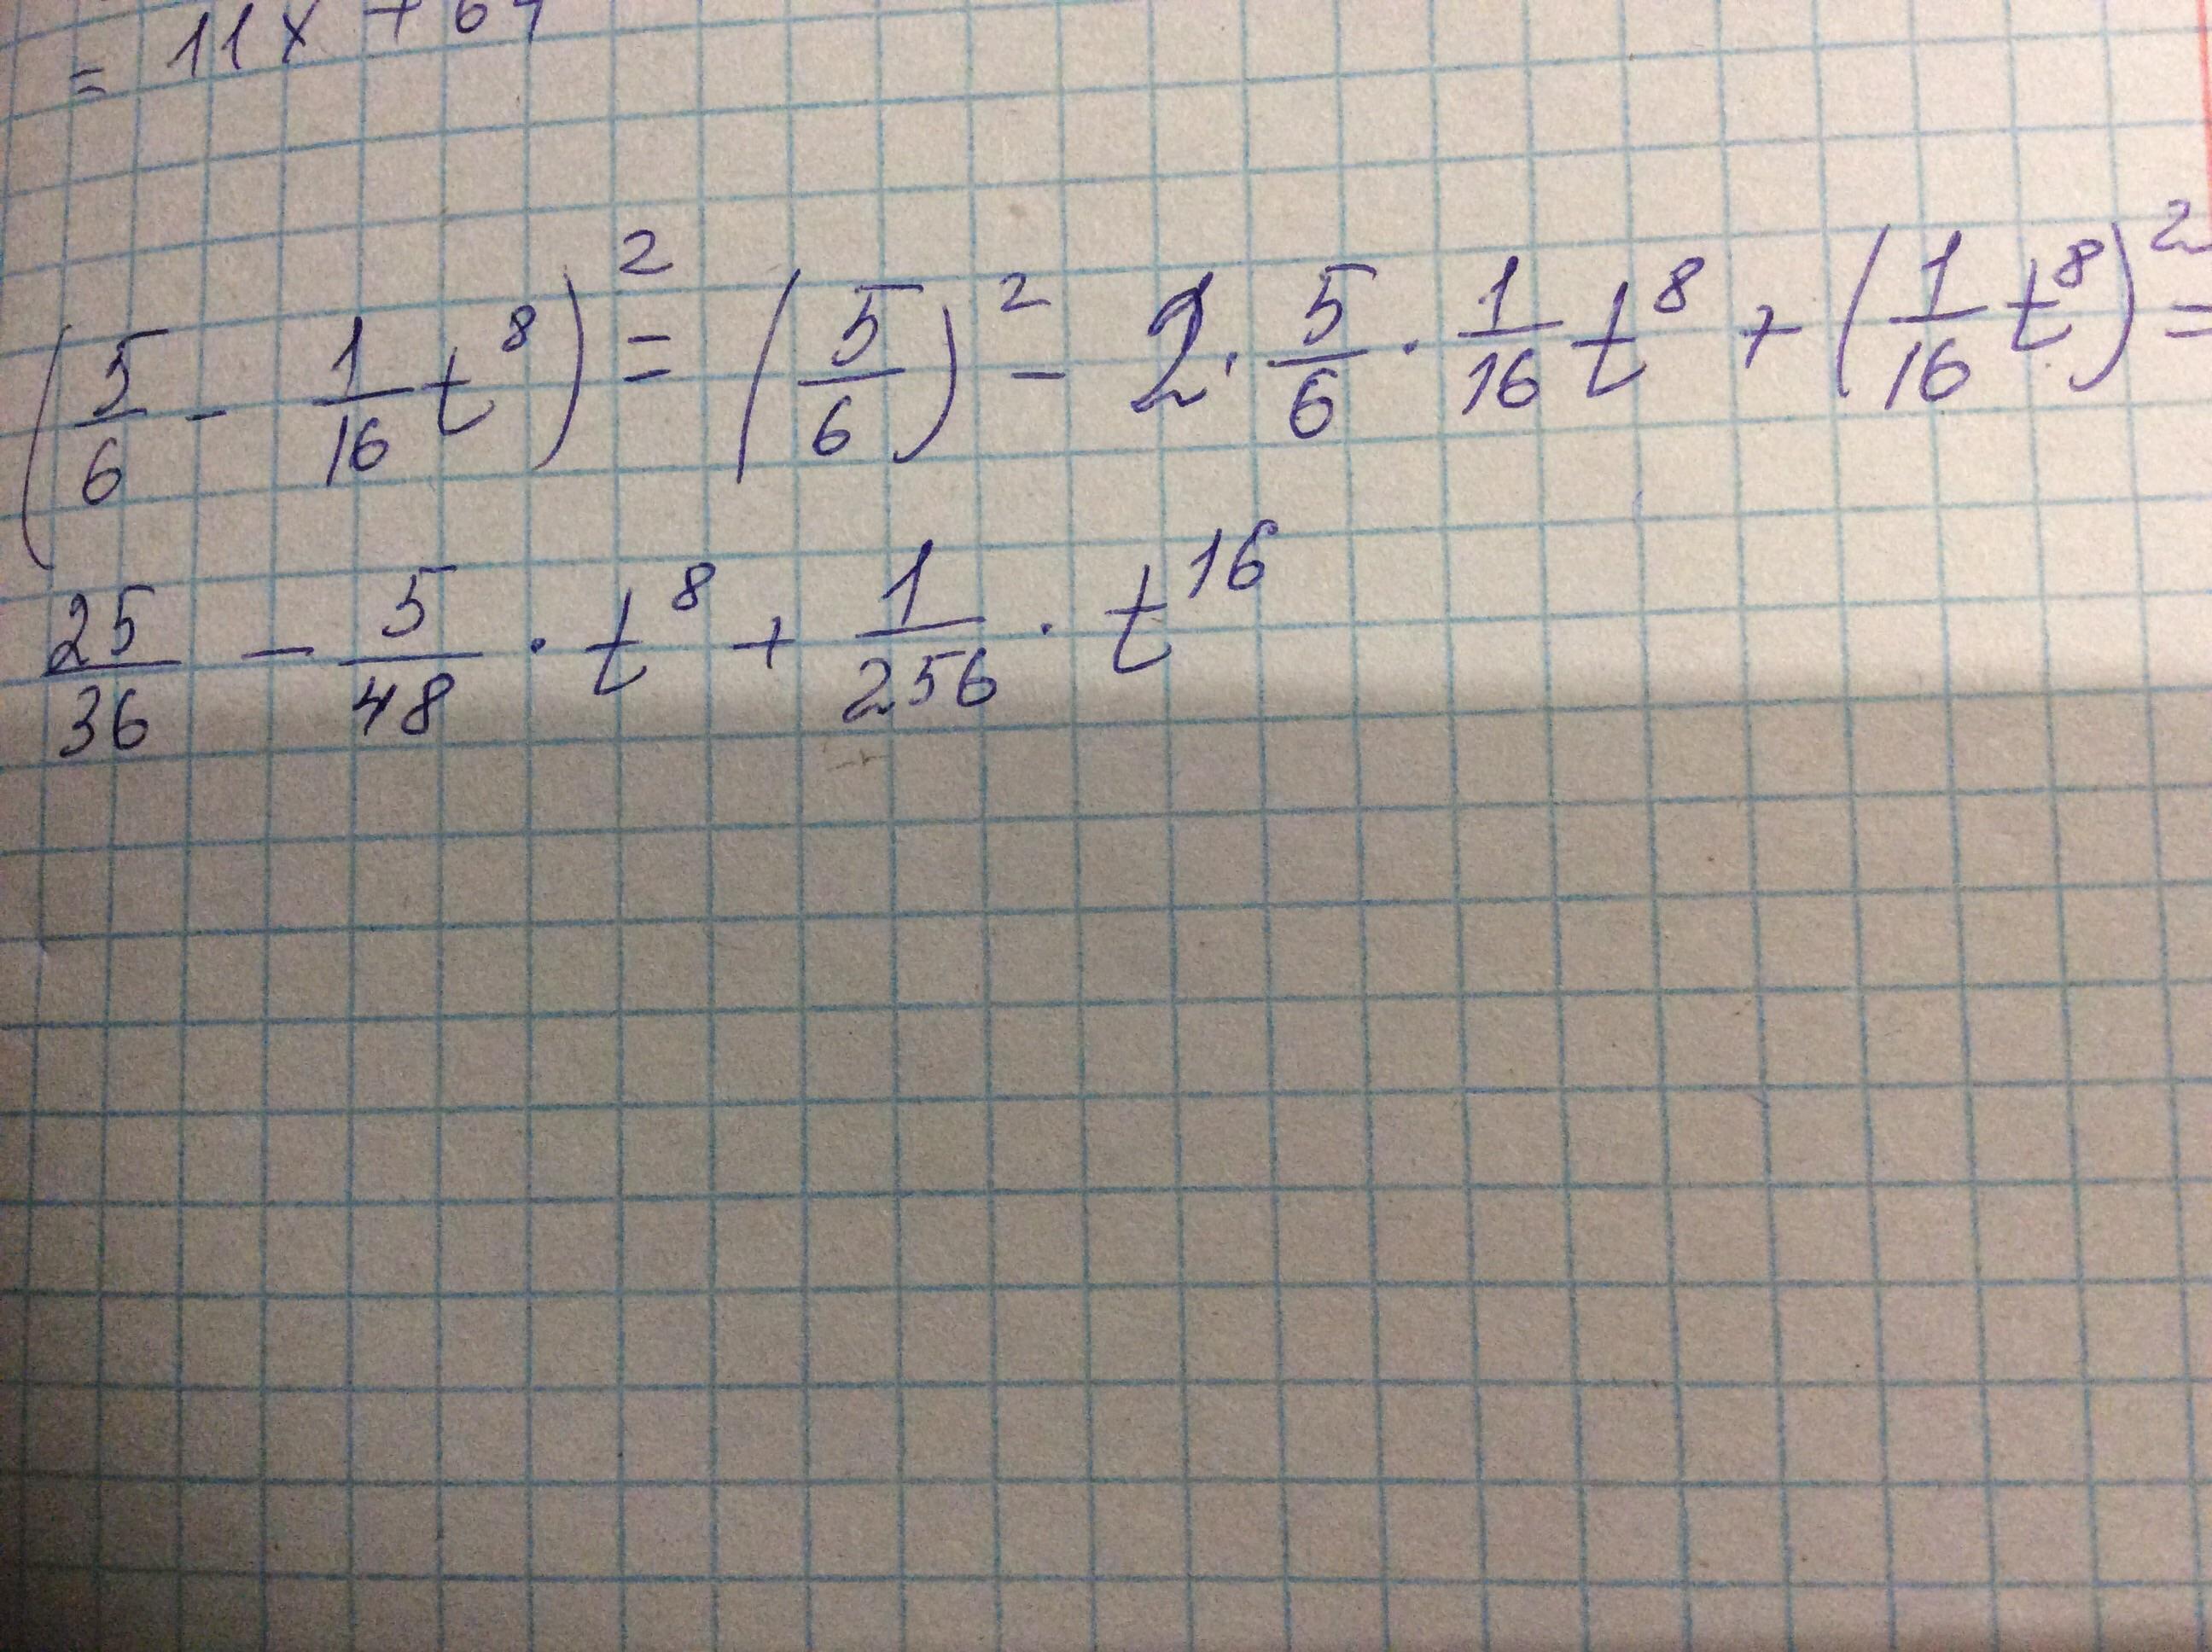 = 11x + 64
(5/6 - 1/16 t^8)^2 = (5/6)^2 - 2 · 5/6 · 1/16 t^8 + (1/16 t^8)^2 =
25/36 - 5/48 · t^8 + 1/256 · t^16